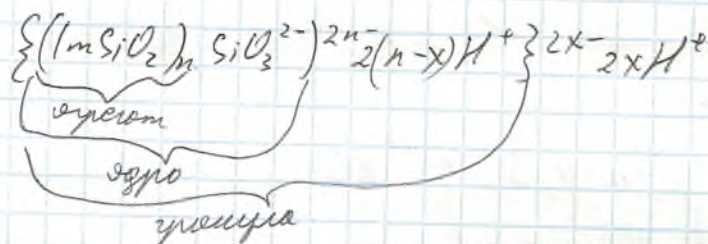 {((mSiO₂)ₙ SiO₃²⁻)²ⁿ⁻ 2(n-x)H⁺}²ˣ⁻ 2xH⁺
агрегат
ядро
гранула